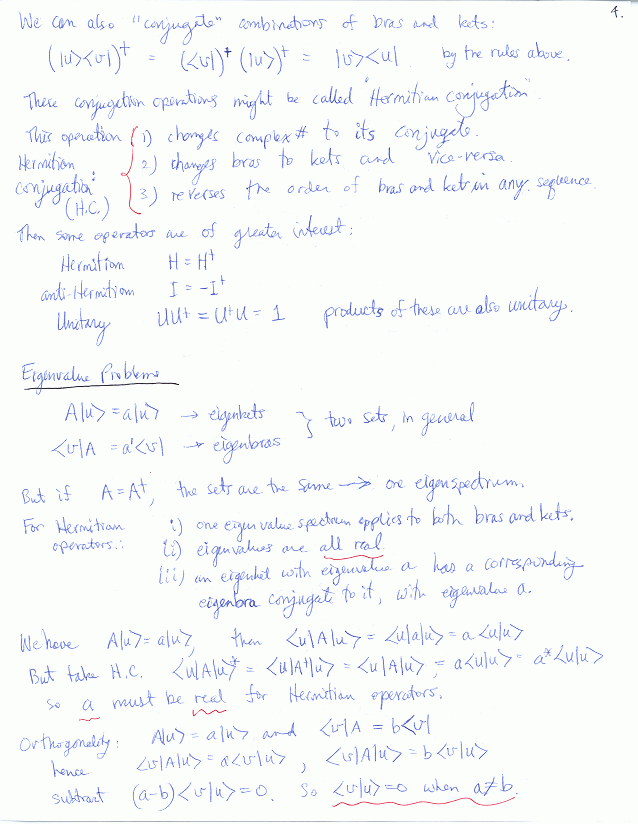 4.
We can also "conjugate" combinations of bras and kets:
(|u><v|)† = (<v|)† (|u>)† = |v><u| by the rules above.
These conjugation operations might be called "Hermitian Conjugation".
This operation 1) changes complex # to its conjugate.
Hermitian 2) changes bras to kets and vice-versa.
conjugation: 3) reverses the order of bras and kets in any sequence.
(H.C.)
Then some operators are of greater interest:
Hermitian H = H†
anti-Hermitian I = -I†
Unitary UU† = U†U = 1 products of these are also unitary.
Eigenvalue Problems
A|u> = a|u> → eigenkets } two sets, in general
<v|A = a'<v| → eigenbras
But if A = A†, the sets are the same → one eigenspectrum.
For Hermitian i) one eigenvalue spectrum applies to both bras and kets.
operators.: ii) eigenvalues are all real
iii) an eigenket with eigenvalue a has a corresponding
eigenbra conjugate to it, with eigenvalue a.
We have A|u> = a|u>, then <u|A|u> = <u|a|u> = a<u|u>
But take H.C. <u|A|u>* = <u|A†|u> = <u|A|u>, = a<u|u> = a*<u|u>
so a must be real for Hermitian operators.
Orthogonality: A|u> = a|u> and <v|A = b<v|
hence <v|A|u> = a<v|u>, <v|A|u> = b<v|u>
subtract (a-b)<v|u> = 0. So <v|u> = 0 when a≠b.